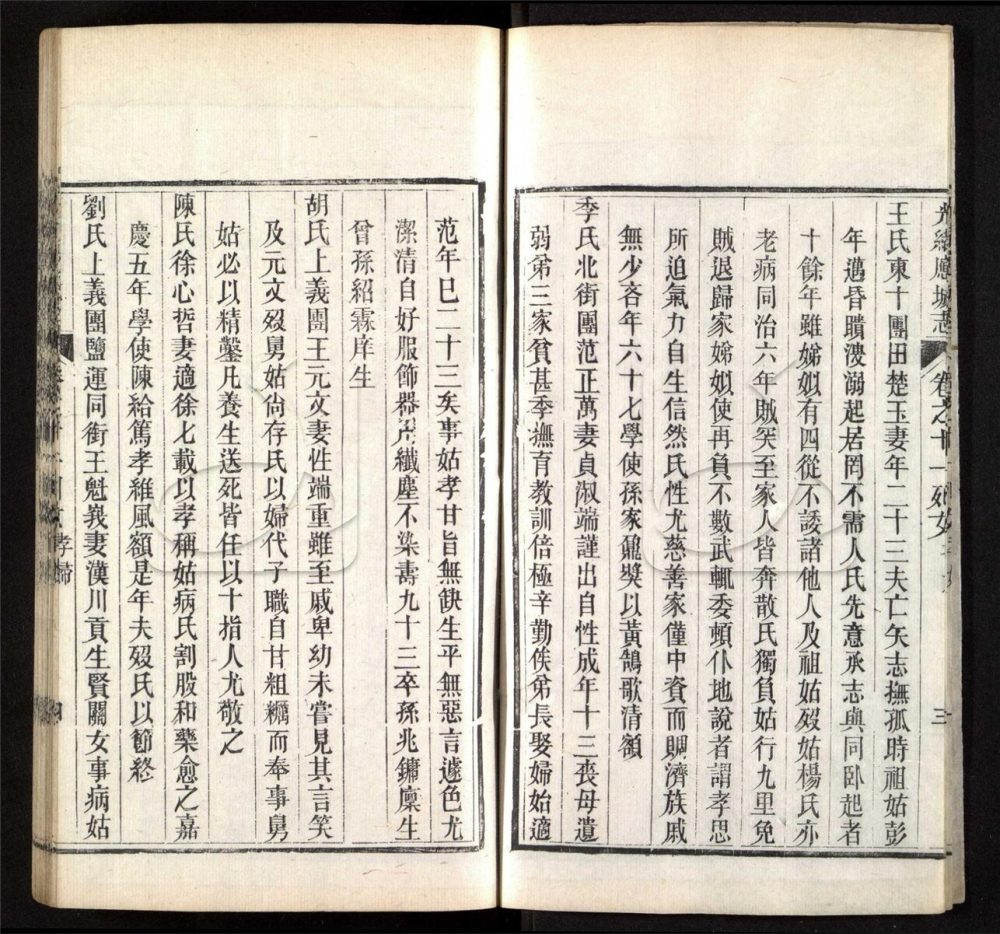 光緒應城志 卷之十一 列女 三
王氏東十團田楚玉妻年二十三夫亡矢志撫孤時祖姑彭
年邁昏聵溲溺起居罔不需人氏先意承志與同臥起者
十餘年雖娣姒有四從不諉諸他人及祖姑歿姑楊氏亦
老病同治六年賊突至家人皆奔散氏獨負姑行九里免
賊退歸家娣姒使再負不數武輒委頓仆地說者謂孝思
所迫氣力自生信然氏性尤慈善家僅中資而賙濟族戚
無少吝年六十七學使孫家鼐獎以黃鵠歌清額
季氏北街團范正萬妻貞淑端謹出自性成年十三喪母遺
弱弟三家貧甚季撫育教訓倍極辛勤俟弟長娶婦始適
范年巳二十三矣事姑孝甘旨無缺生平無惡言遽色尤
潔清自好服飾器
纖塵不染壽九十三卒孫兆鏞廩生
曾孫紹霖庠生
胡氏上義團王元文妻性端重雖至戚卑幼未嘗見其言笑
及元文歿舅姑尙存氏以婦代子職自甘粗糲而奉事舅
姑必以精鑿凡養生送死皆任以十指人尤敬之
陳氏徐心哲妻適徐七載以孝稱姑病氏割股和藥愈之嘉
慶五年學使陳給篤孝維風額是年夫歿氏以節終
劉氏上義團鹽運同銜王魁
妻漢川貢生賢關女事病姑
孝婦